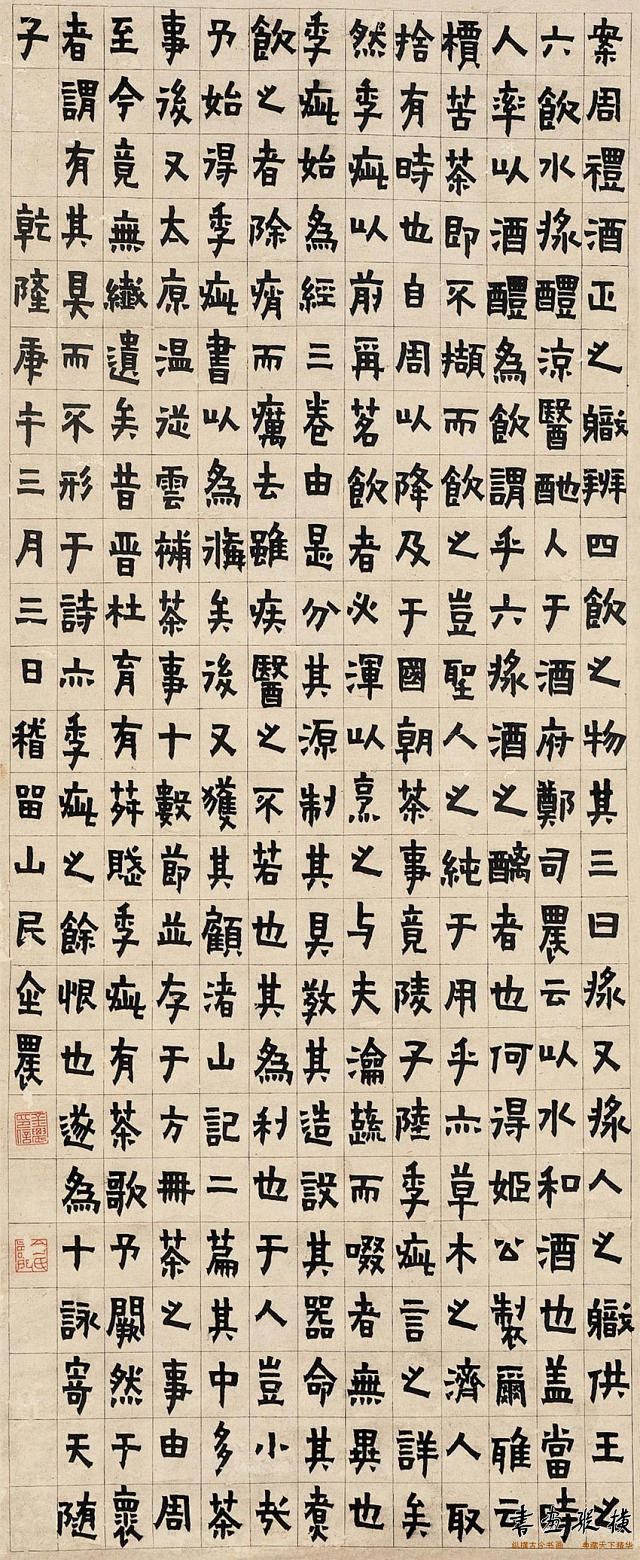 案周禮酒正之職辨四飲之物其三曰漿又漿人之職供王之
六飲水漿醴涼醫酏人于酒府鄭司農云以水和酒也盖當時
人率以酒醴為飲謂乎六漿酒之醨者也何得姬公製爾雅云
檟苦茶即不擷而飲之豈聖人之純于用乎亦草木之濟人取
捨有時也自周以降及于國朝茶事竟陵子陸季疵言之詳矣
然季疵以前爯茗飲者必渾以烹之与夫瀹蔬而啜者無異也
季疵始為經三卷由是分其源制其具教其造設其器命其煮
飲之者除痟而癘去雖疾醫之不若也其為利也于人豈小哉
予始得季疵書以為備矣後又獲其顧渚山記二篇其中多茶
事後又太原温從雲補茶事十數節並存于方冊茶之事由周
至今竟無纖遺矣昔晋杜育有荈賦季疵有茶歌予闕然于懷
者謂有其具而不形于詩亦季疵之餘恨也遂為十詠寄天随
子 乾隆庚午三月三日稽留山民金農
書画縱橫
纵横古今书画 典藏天下精华